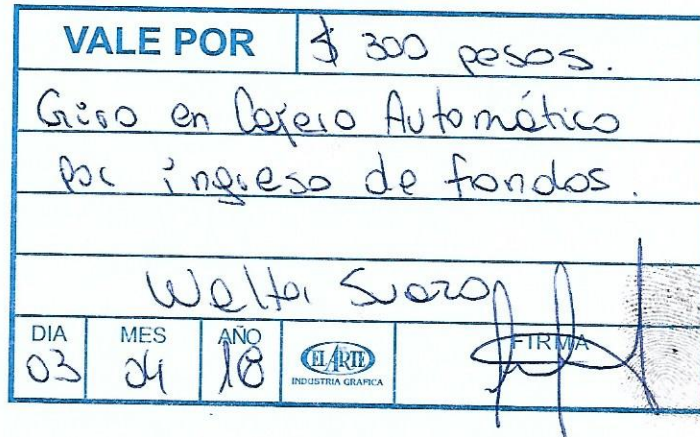 VALE POR $ 300 pesos.
Giro en Cajero Automático
por ingreso de fondos.
Walter Suazo
DIA MES AÑO FIRMA
03 04 18 EL ARTE
INDUSTRIA GRAFICA